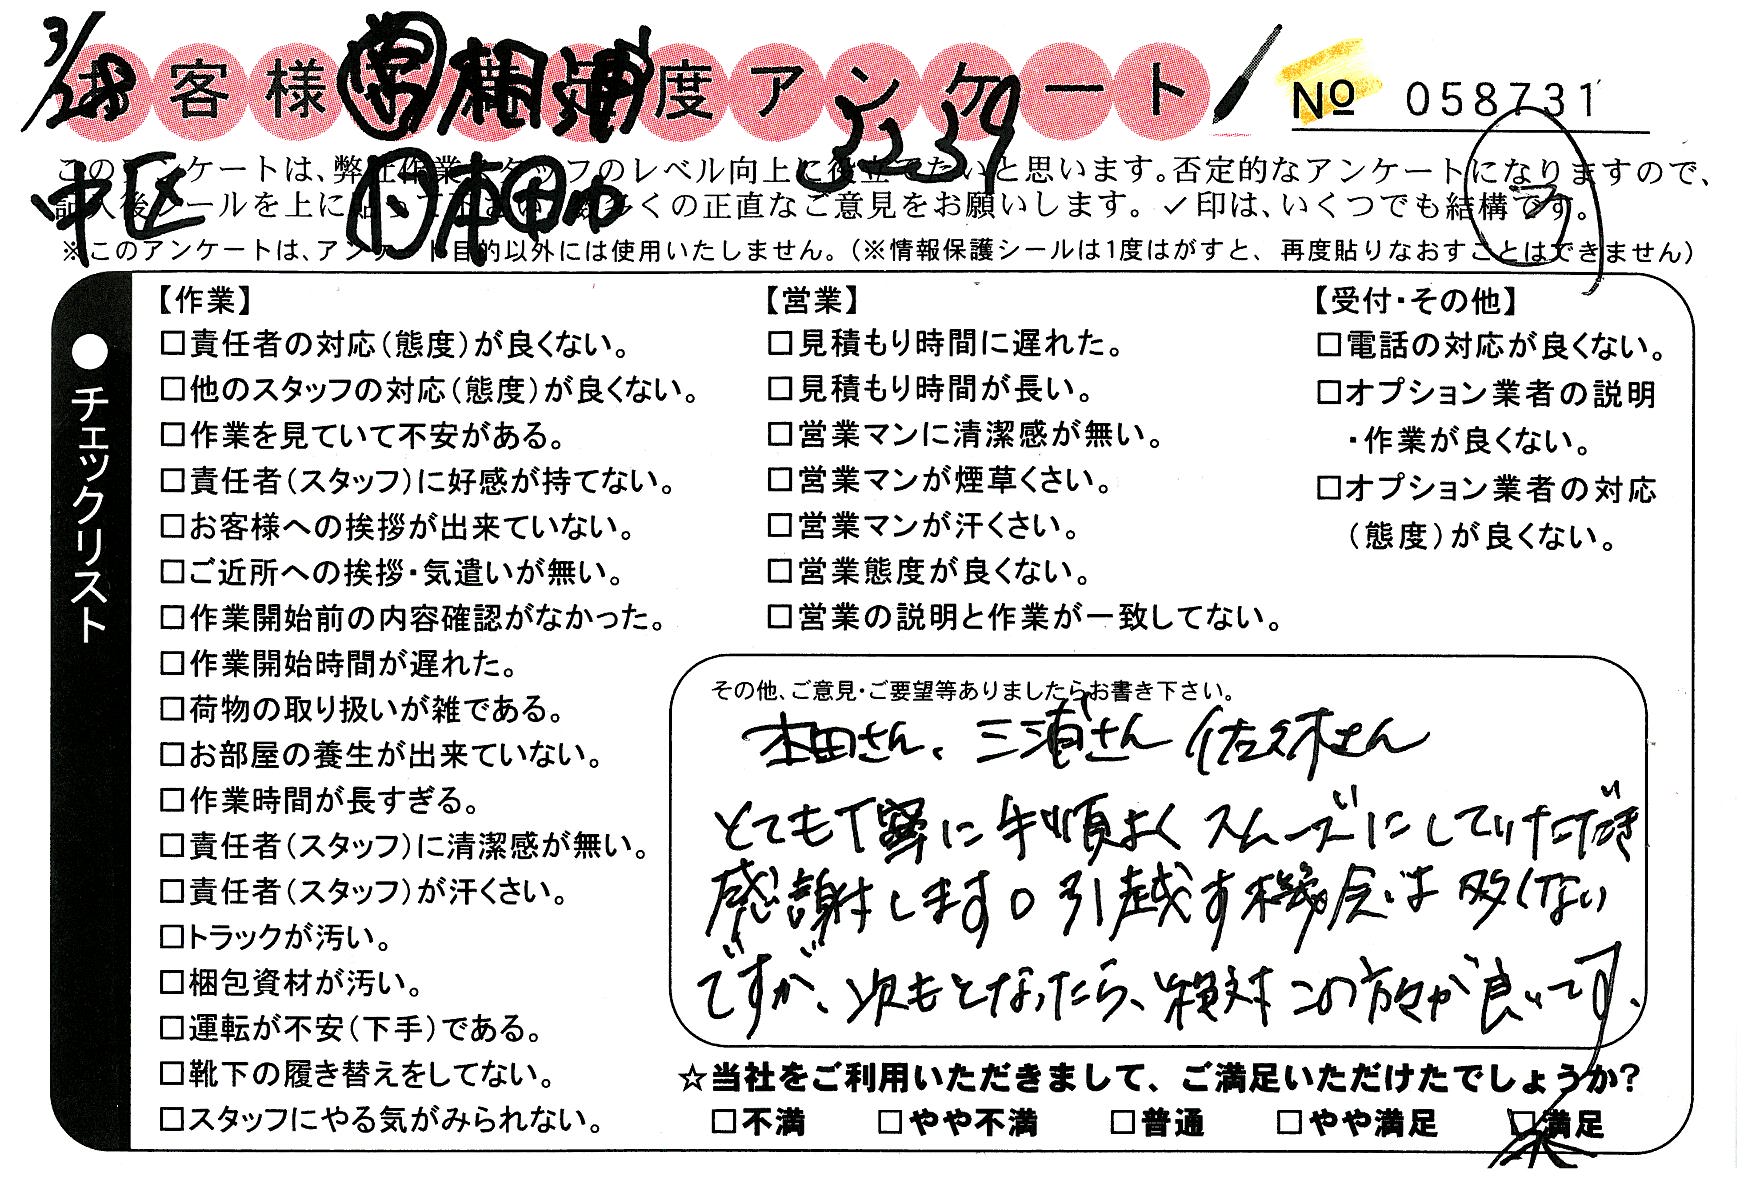 3/28
お客様満足度アンケート
No 058731
営 相浦
3239
このアンケートは、弊社作業スタッフのレベル向上に役立てたいと思います。否定的なアンケートになりますので、
中区 作 本田
記入後シールを上に貼って下さい。数多くの正直なご意見をお願いします。✓印は、いくつでも結構です。
※このアンケートは、アンケート目的以外には使用いたしません。(※情報保護シールは1度はがすと、再度貼りなおすことはできません)
●チェックリスト
【作業】
□責任者の対応(態度)が良くない。
□他のスタッフの対応(態度)が良くない。
□作業を見ていて不安がある。
□責任者(スタッフ)に好感が持てない。
□お客様への挨拶が出来ていない。
□ご近所への挨拶・気遣いが無い。
□作業開始前の内容確認がなかった。
□作業開始時間が遅れた。
□荷物の取り扱いが雑である。
□お部屋の養生が出来ていない。
□作業時間が長すぎる。
□責任者(スタッフ)に清潔感が無い。
□責任者(スタッフ)が汗くさい。
□トラックが汚い。
□梱包資材が汚い。
□運転が不安(下手)である。
□靴下の履き替えをしてない。
□スタッフにやる気がみられない。
【営業】
□見積もり時間に遅れた。
□見積もり時間が長い。
□営業マンに清潔感が無い。
□営業マンが煙草くさい。
□営業マンが汗くさい。
□営業態度が良くない。
□営業の説明と作業が一致してない。
【受付・その他】
□電話の対応が良くない。
□オプション業者の説明
・作業が良くない。
□オプション業者の対応
(態度)が良くない。
その他、ご意見・ご要望等ありましたらお書き下さい。
本田さん、三浦さん 佐々木さん
とても丁寧に手順よくスムーズにしていただき
感謝します。引越す機会は多くない
ですが、次もとなったら、絶対この方々が良いです。
☆当社をご利用いただきまして、ご満足いただけたでしょうか?
□不満 □やや不満 □普通 □やや満足 □満足